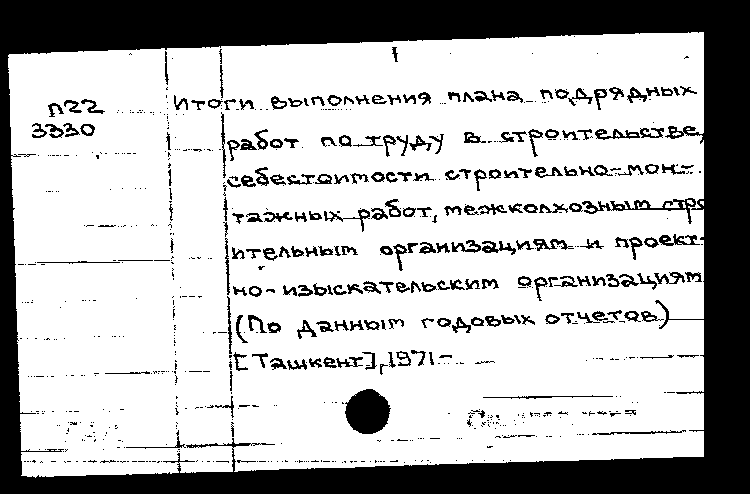 П22 Итоги выполнения плана подрядных
3330
работ по труду в строительстве,
себестоимости строительно-мон-
тажных работ, межколхозным стро
ительным организациям и проект-
но-изыскательским организациям
(По данным годовых отчетов)
[Ташкент], 1971-